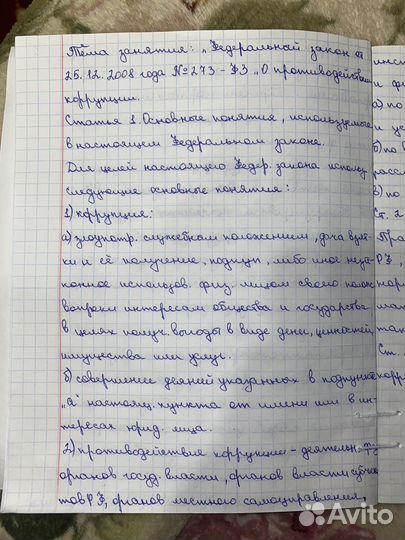 Тема занятия: „Федеральный закон от
25.12.2008 года №273-ФЗ „О противодействии
коррупции.
Статья 1. Основные понятия, используемые
в настоящем Федеральном законе.
Для целей настоящего Федер. закона использ
следующие основные понятия:
1) коррупция:
а) злоупотр. служебным положением, дача взят-
ки и её получение, подкуп, либо иное неза-
конное использов. физ. лицом своего полож
вопреки интересам общества и государства
в целях получ. выгоды в виде денег, ценностей
имущества или услуг.
б) совершение деяний указанных в подпункте
„а" настоящ. пункта от имени или в ин-
тересах юрид. лица.
2) противодействие коррупции - деятельн.
органов госуд. власти, органов власти субъек
тов РФ, органов местного самоуправления,
инст
и ф
а) по
и у
б) по
рассл
в) по
Ст. 2
Пра
РФ,
нар
мат
как
Ст.
корр
Avito